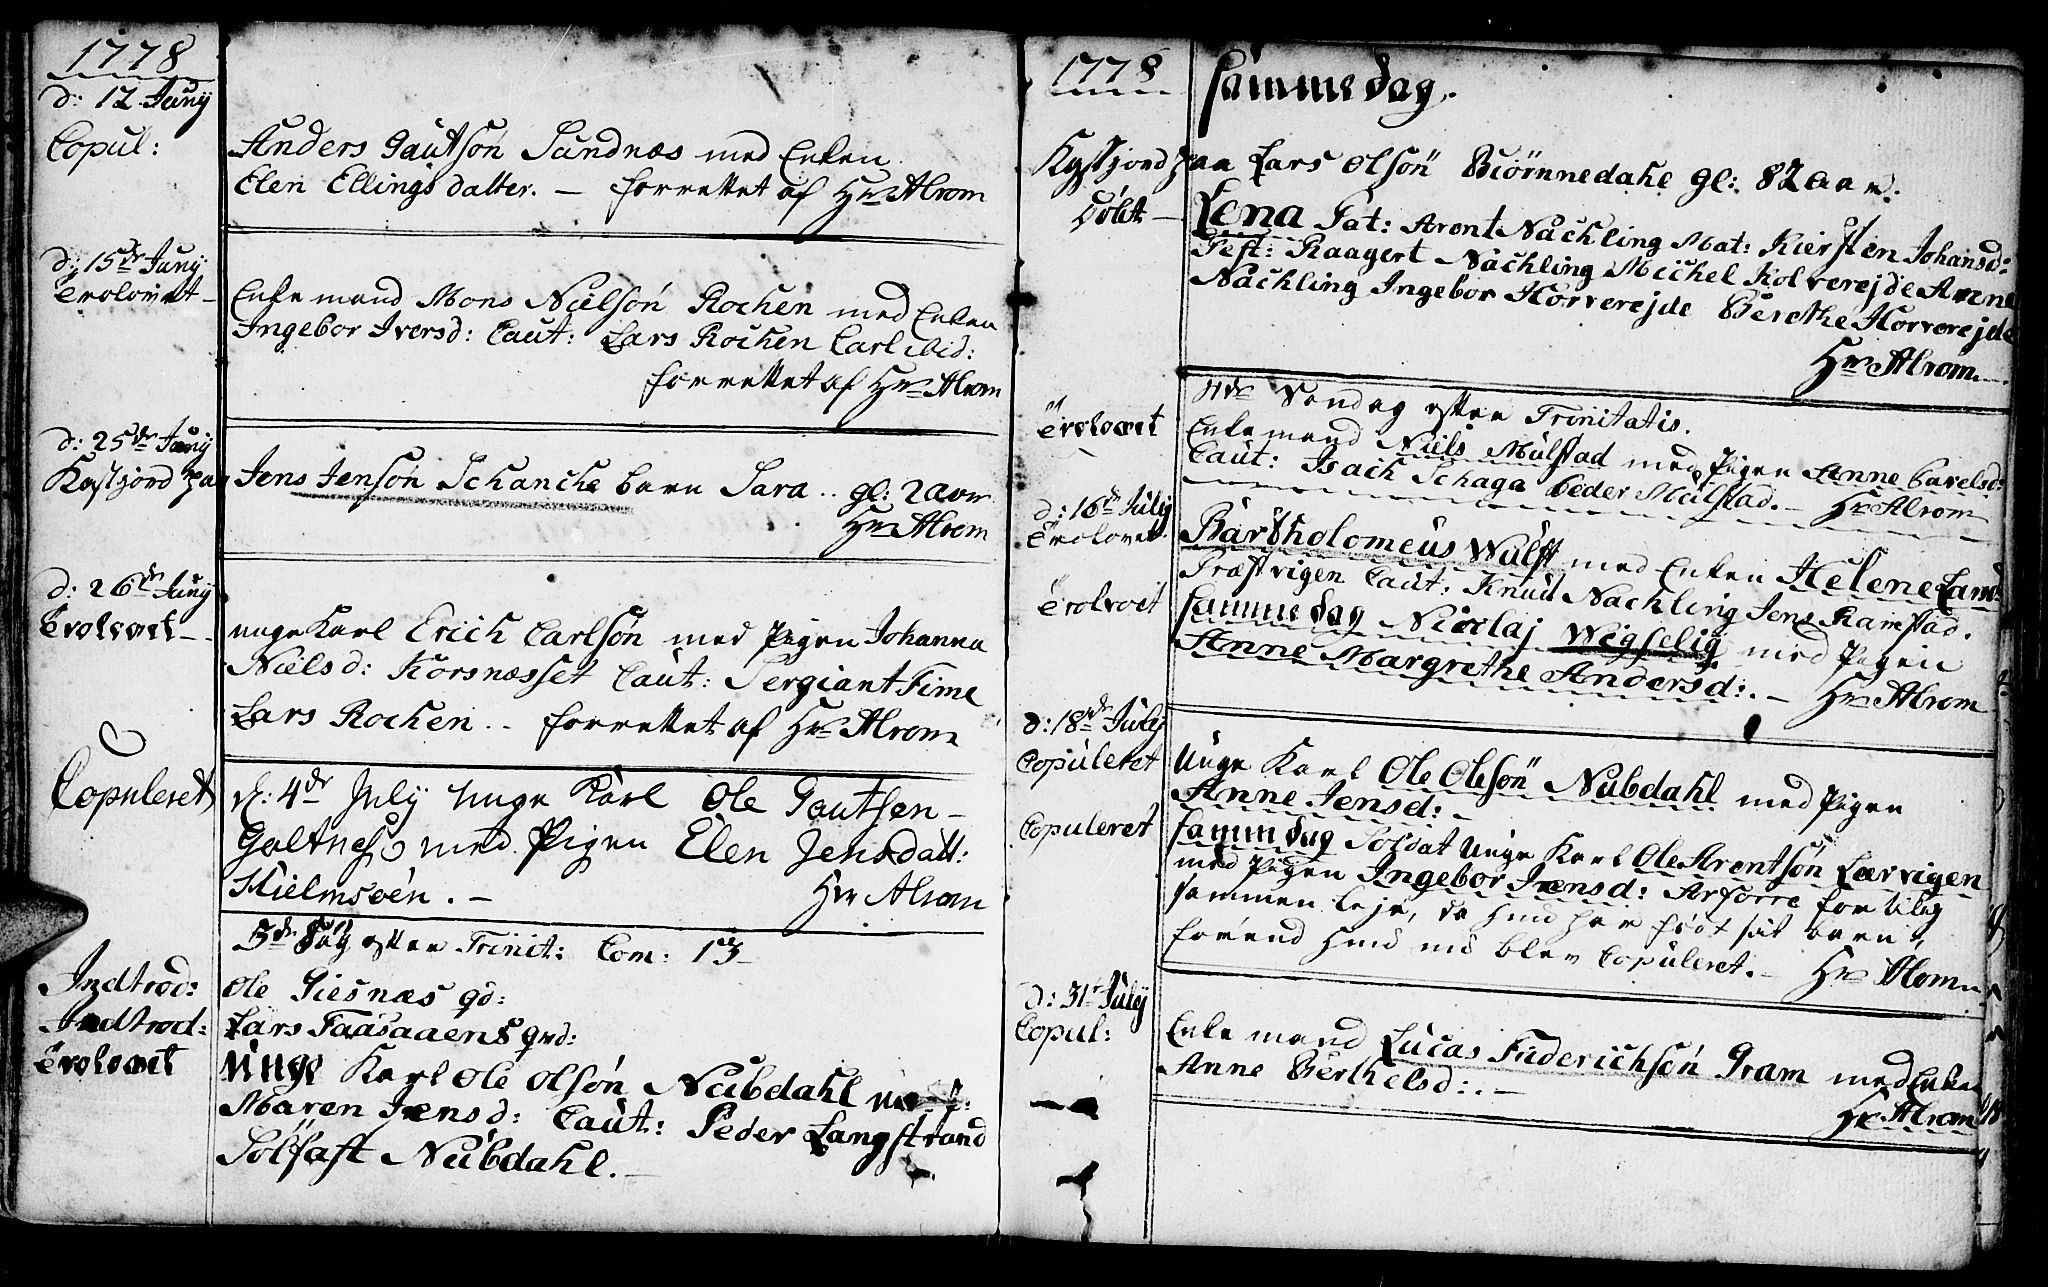 1778
d: 12 Juny
Copul:
Anders Gautsøn Sundnæs med Enken
Elen Ellings datter. — forrettet af Hr Alrom
d: 15de Juny
Trolovet —
Enke mand Mons Nielsøn Rochen med Enken
Ingebor Iversd: Caut: Lars Rochen Carl ibid:
forrettet af Hr Alrom
d: 25de Juny
Kastjord paa
Jens Jensøn Schancke barn Sara .. gl: 2 aar
Hr Alrom
d: 26de Juny
Trolovet —
unge Karl Erich Carlsøn med Pigen Johanna
Nielsd: Korsnæsset Caut: Sergiant Fime
Lars Rochen .. forrettet af Hr Alrom
Copuleret
d: 4de July unge Karl Ole Gautsen
Galtnes med Pigen Elen Jensdatt:
Hielmsøen. — Hr Alrom
3de Søn efter Trinit: Com: 13
Indtrød:
Ole Giesnæs qd:
Indtrød:
Lars Faasaaens qvd:
Trolovet
Unge Karl Ole Olsøn Nubdahl
Maren Jensd: Caut: Peder Langstrand
Solfast Nubdahl. —
1778
samme dag.
Kystjord paa Lars Olsøn Biørnnedahl gl: 82 aar.
Døbt —
Lena Pat: Arent Nachling Mat: Kiersten Johansd:
Test: Raagert Nachling Michel Holverejde Anne
Nachling Ingebor Horverejde Berethe Horverejde
Hr Alrom.
4de Søndag efter Trinitatis.
Trolovet
Enke mand Niels Mulstad med Pigen Anne Pavelsd:
Caut: Isach Schaga Peder Mulstad. — Hr Alrom
d: 16de July
Trolovet
Bartholomeus Wulff med Enken Helene
Træstvigen Caut: Knud Nachling Jens Ramstad.
Trolovet
samme dag Nicolaj Wigselig med Pigen
Anne Margrethe Andersd: . — Hr Alrom
d: 18de July
Copuleret
Unge Karl Ole Olesøn Nubdahl med Pigen
Anne Jensd: —
Copuleret
samm dag Soldat Unge Karl Ole Arentsøn Lervigen
med Pigen Ingebor Jensd: for tilig
sammen leje, da hun har født sit barn,
førend hun nu blev Copuleret. — Hr Alrom
d: 31te July
Copul:
Enke mand Lucas Friderichsøn Gram med Enken
Anne Berthelsd: . —
Hr Alrom